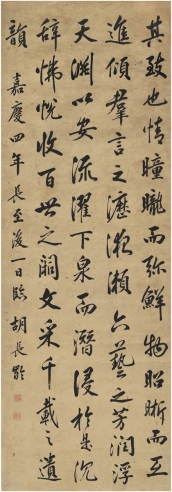 其致也情曈曨而弥鮮物昭晰而互
進傾羣言之瀝液漱六藝之芳潤浮
天淵以安流濯下泉而潛浸於是沉
辭怫悅收百世之闕文采千載之遺
韻 嘉慶四年長至後一日臨 胡長齡